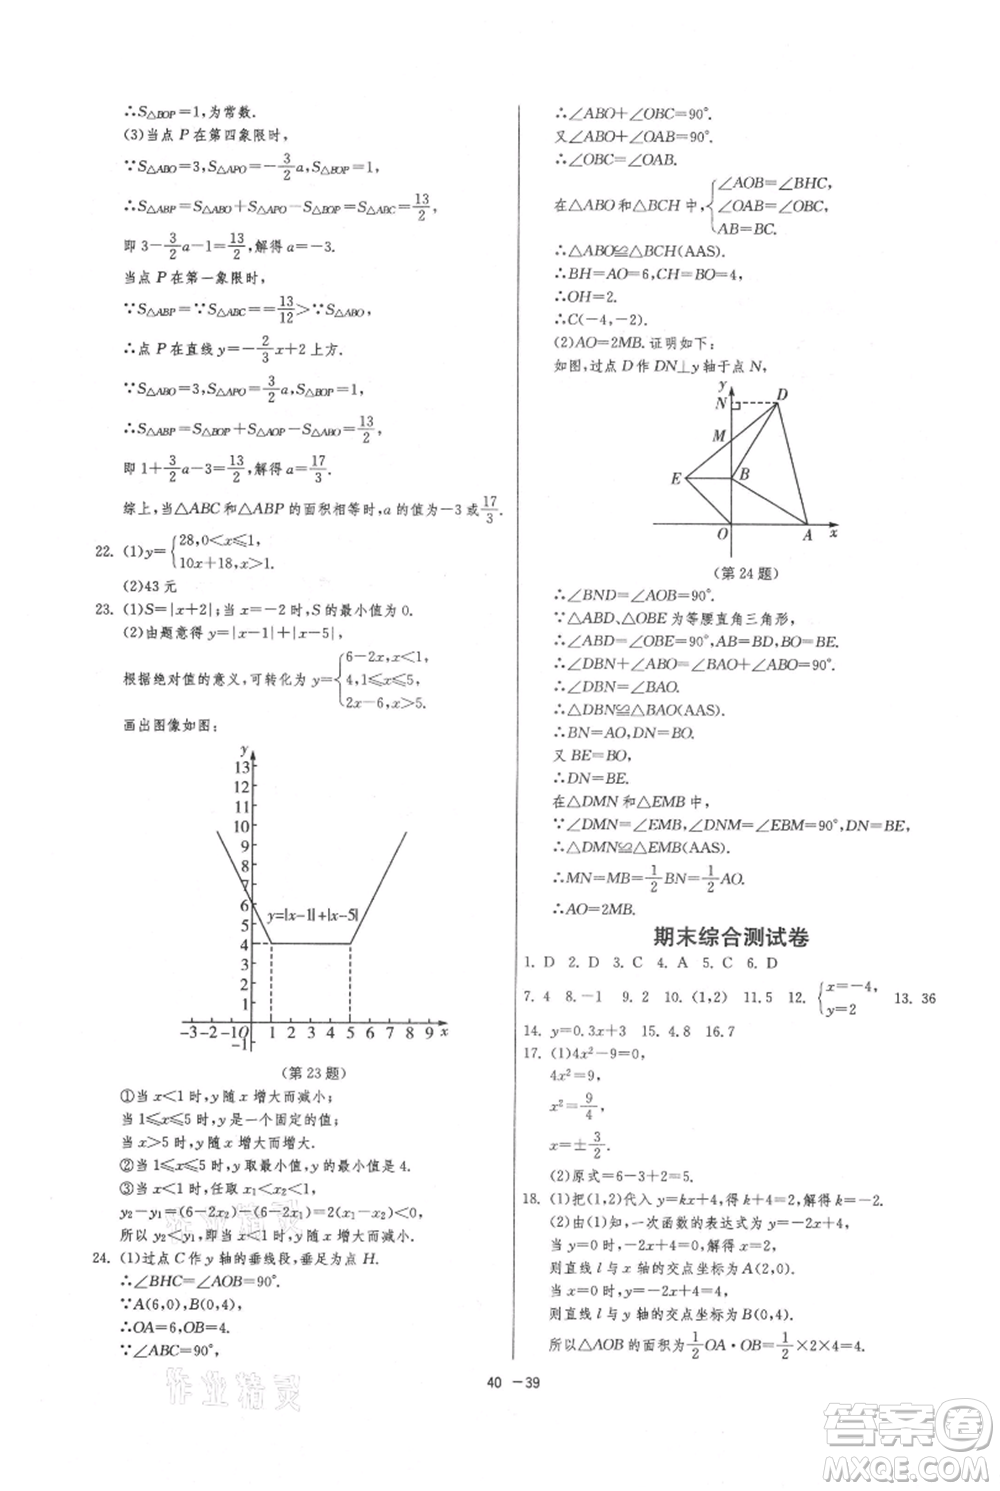 ∴S△BOP=1,为常数.
(3)当点 P 在第四象限时,
∵S△ABO=3,S△APO=-3/2a,S△BOP=1,
∴S△ABP=S△ABO+S△APO-S△BOP=S△ABC=13/2,
即 3-3/2a-1=13/2,解得 a=-3.
当点 P 在第一象限时,
∵S△ABP=∵S△ABC==13/12>∵S△ABO,
∴点 P 在直线 y=-2/3x+2 上方.
∵S△ABO=3,S△APO=3/2a,S△BOP=1,
∴S△ABP=S△BOP+S△AOP-S△ABO=13/2,
即 1+3/2a-3=13/2,解得 a=17/3.
综上,当△ABC 和△ABP 的面积相等时,a 的值为-3 或17/3.
22. (1)y={28,0<x≤1,
10x+18,x>1.
(2)43 元
23. (1)S=|x+2|;当 x=-2 时,S 的最小值为 0.
(2)由题意得 y=|x-1|+|x-5|,
根据绝对值的意义,可转化为 y={6-2x,x<1,
4,1≤x≤5,
2x-6,x>5.
画出图像如图:
y
13
12
11
10
9
8
7
6
5
4
3
2
1
y=|x-1|+|x-5|
-3 -2 -1 0 1 2 3 4 5 6 7 8 9 x
-1
(第 23 题)
①当 x<1 时,y 随 x 增大而减小;
当 1≤x≤5 时,y 是一个固定的值;
当 x>5 时,y 随 x 增大而增大.
②当 1≤x≤5 时,y 取最小值,最小值是 4.
③当 x<1 时,任取 x1<x2,
y2-y1=(6-2x2)-(6-2x1)=2(x1-x2)<0,
所以 y2<y1,即当 x<1 时,y 随 x 增大而减小.
24. (1)过点 C 作 y 轴的垂线段,垂足为点 H.
∴∠BHC=∠AOB=90°.
∵A(6,0),B(0,4),
∴OA=6,OB=4.
∵∠ABC=90°,
∴∠ABO+∠OBC=90°.
又∠ABO+∠OAB=90°.
∴∠OBC=∠OAB.
在△ABO 和△BCH 中,{∠AOB=∠BHC,
∠OAB=∠OBC,
AB=BC.
∴△ABO≌△BCH(AAS).
∴BH=AO=6,CH=BO=4,
∴OH=2.
∴C(-4,-2).
(2)AO=2MB.证明如下:
如图,过点 D 作 DN⊥y 轴于点 N,
y
N
D
M
E
B
O
A
x
(第 24 题)
∴∠BND=∠AOB=90°.
∵△ABD、△OBE 为等腰直角三角形,
∴∠ABD=∠OBE=90°,AB=BD,BO=BE.
∴∠DBN+∠ABO=∠BAO+∠ABO=90°.
∴∠DBN=∠BAO.
∴△DBN≌△BAO(AAS).
∴BN=AO,DN=BO.
又 BE=BO,
∴DN=BE.
在△DMN 和△EMB 中,
∵∠DMN=∠EMB,∠DNM=∠EBM=90°,DN=BE,
∴△DMN≌△EMB(AAS).
∴MN=MB=1/2BN=1/2AO.
∴AO=2MB.
期末综合测试卷
1. D 2. D 3. C 4. A 5. C 6. D
7. 4 8. -1 9. 2 10. (1,2) 11. 5 12. {x=-4,
y=2 13. 36
14. y=0.3x+3 15. 4.8 16. 7
17. (1)4x²-9=0,
4x²=9,
x²=9/4,
x=±3/2.
(2)原式=6-3+2=5.
18. (1)把(1,2)代入 y=kx+4,得 k+4=2,解得 k=-2.
(2)由(1)知,一次函数的表达式为 y=-2x+4,
当 y=0 时,-2x+4=0,x=2,
则直线 l 与 x 轴的交点坐标为 A(2,0).
当 x=0 时,y=-2x+4=4,
则直线 l 与 y 轴的交点坐标为 B(0,4).
所以△AOB 的面积为1/2OA·OB=1/2×2×4=4.
作业精灵
作业精灵
40 －39
答案卷
MXQE.COM